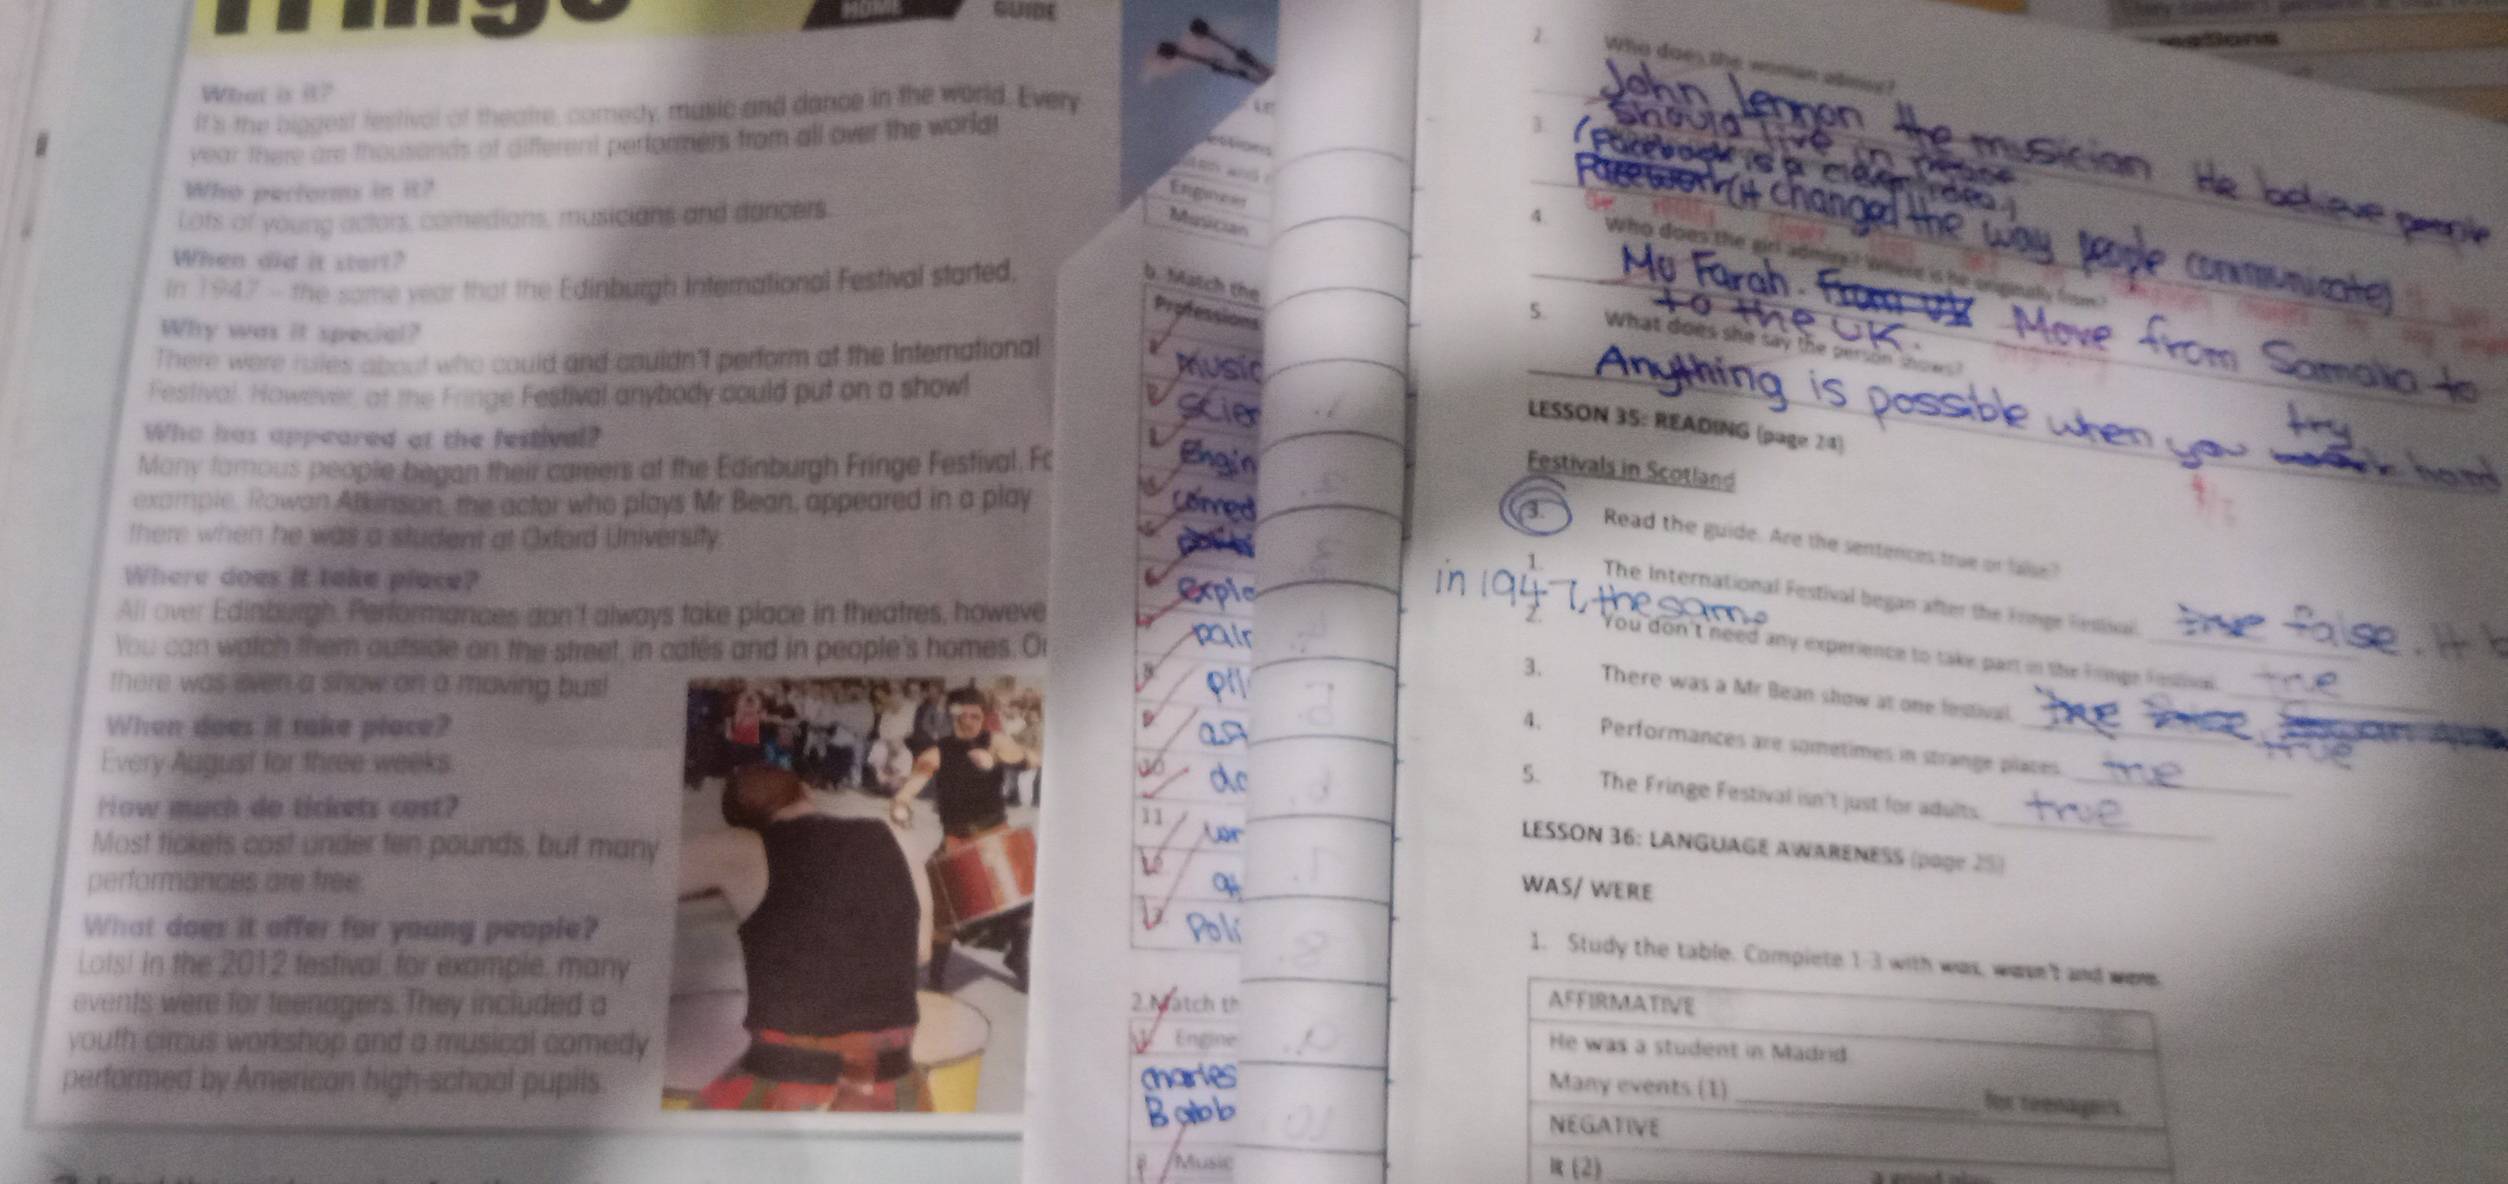 Fringe
HOME
GUIDE
What is it?
It's the biggest festival of theatre, comedy, music and dance in the world. Every
year there are thousands of different performers from all over the world!
Who performs in it?
Lots of young actors, comedians, musicians and dancers.
When did it start?
In 1947 – the same year that the Edinburgh International Festival started.
Why was it special?
There were rules about who could and couldn't perform at the International
Festival. However, at the Fringe Festival anybody could put on a show!
Who has appeared at the festival?
Many famous people began their careers at the Edinburgh Fringe Festival. Fo
example, Rowan Atkinson, the actor who plays Mr Bean, appeared in a play
there when he was a student at Oxford University.
Where does it take place?
All over Edinburgh. Performances don't always take place in theatres, howeve
You can watch them outside on the street, in cafés and in people's homes. Or
there was even a show on a moving bus!
When does it take place?
Every August for three weeks.
How much do tickets cost?
Most tickets cost under ten pounds, but many
performances are free.
What does it offer for young people?
Lots! In the 2012 festival, for example, many
events were for teenagers. They included a
youth circus workshop and a musical comedy
performed by American high-school pupils.
Engineer
Musician
b. Match the
Professions
music
scien
Engin
comed
explo
pain
pil
as
do
11
wr
at
Poli
2.Match th
1. Engine
charles
Babb
Music
2. Who does the woman admire?
John Lennon the musician He believe people
should live in peace
3. (Facebook is a clever idea)
(it changed the way people communicate)
4. Who does the girl admire? Where is he originally from?
Mo Farah. Move from Somalia to
to the UK.
5. What does she say the person shows?
Anything is possible when you try hard
LESSON 35: READING (page 24)
Festivals in Scotland
3. Read the guide. Are the sentences true or false?
1. The International Festival began after the Fringe Festival. false. It b
in 1947, the same
2. You don't need any experience to take part in the Fringe Festival. true
3. There was a Mr Bean show at one festival. true
4. Performances are sometimes in strange places. true
5. The Fringe Festival isn't just for adults. true
LESSON 36: LANGUAGE AWARENESS (page 25)
WAS/ WERE
1. Study the table. Complete 1-3 with was, wasn't and were.
AFFIRMATIVE
He was a student in Madrid
Many events (1) for teenagers.
NEGATIVE
It (2)